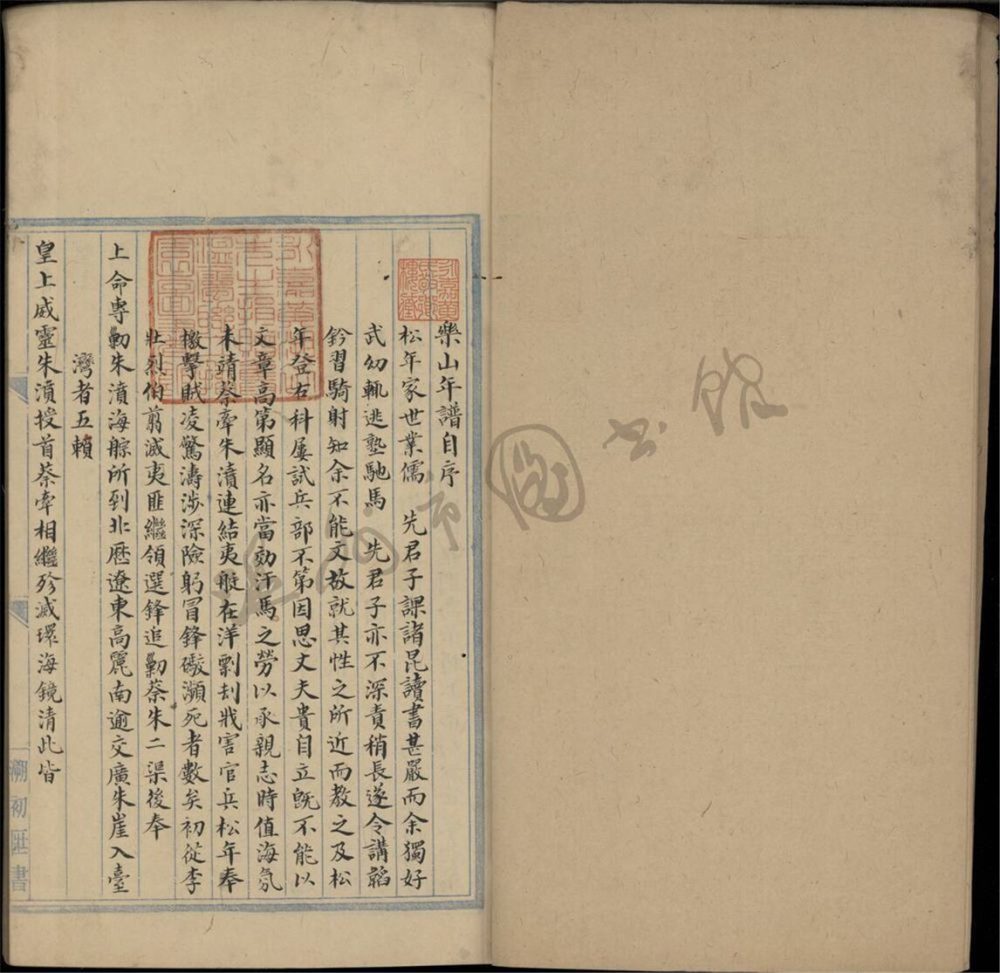 樂山年譜自序
松年家世業儒　先君子課諸昆讀書甚嚴而余獨好
武幼輒逃塾馳馬　先君子亦不深責稍長遂令講韜
鈐習騎射知余不能文故就其性之所近而教之及松
年登右科屢試兵部不第因思丈夫貴自立旣不能以
文章高第顯名亦當効汗馬之勞以承親志時值海氛
未靖蔡牽朱濆連結夷艇在洋剽刦戕害官兵松年奉
檄擊賊凌驚濤涉深險躬冒鋒礮瀕死者數矣初從李
壯烈伯翦滅夷匪繼領選鋒追勦蔡朱二渠後奉
上命專勦朱濆海艅所到北歷遼東高麗南逾交廣朱崖入臺
灣者五賴
皇上威靈朱濆授首蔡牽相繼殄滅環海鏡清此皆
溯初匨書
圖書館